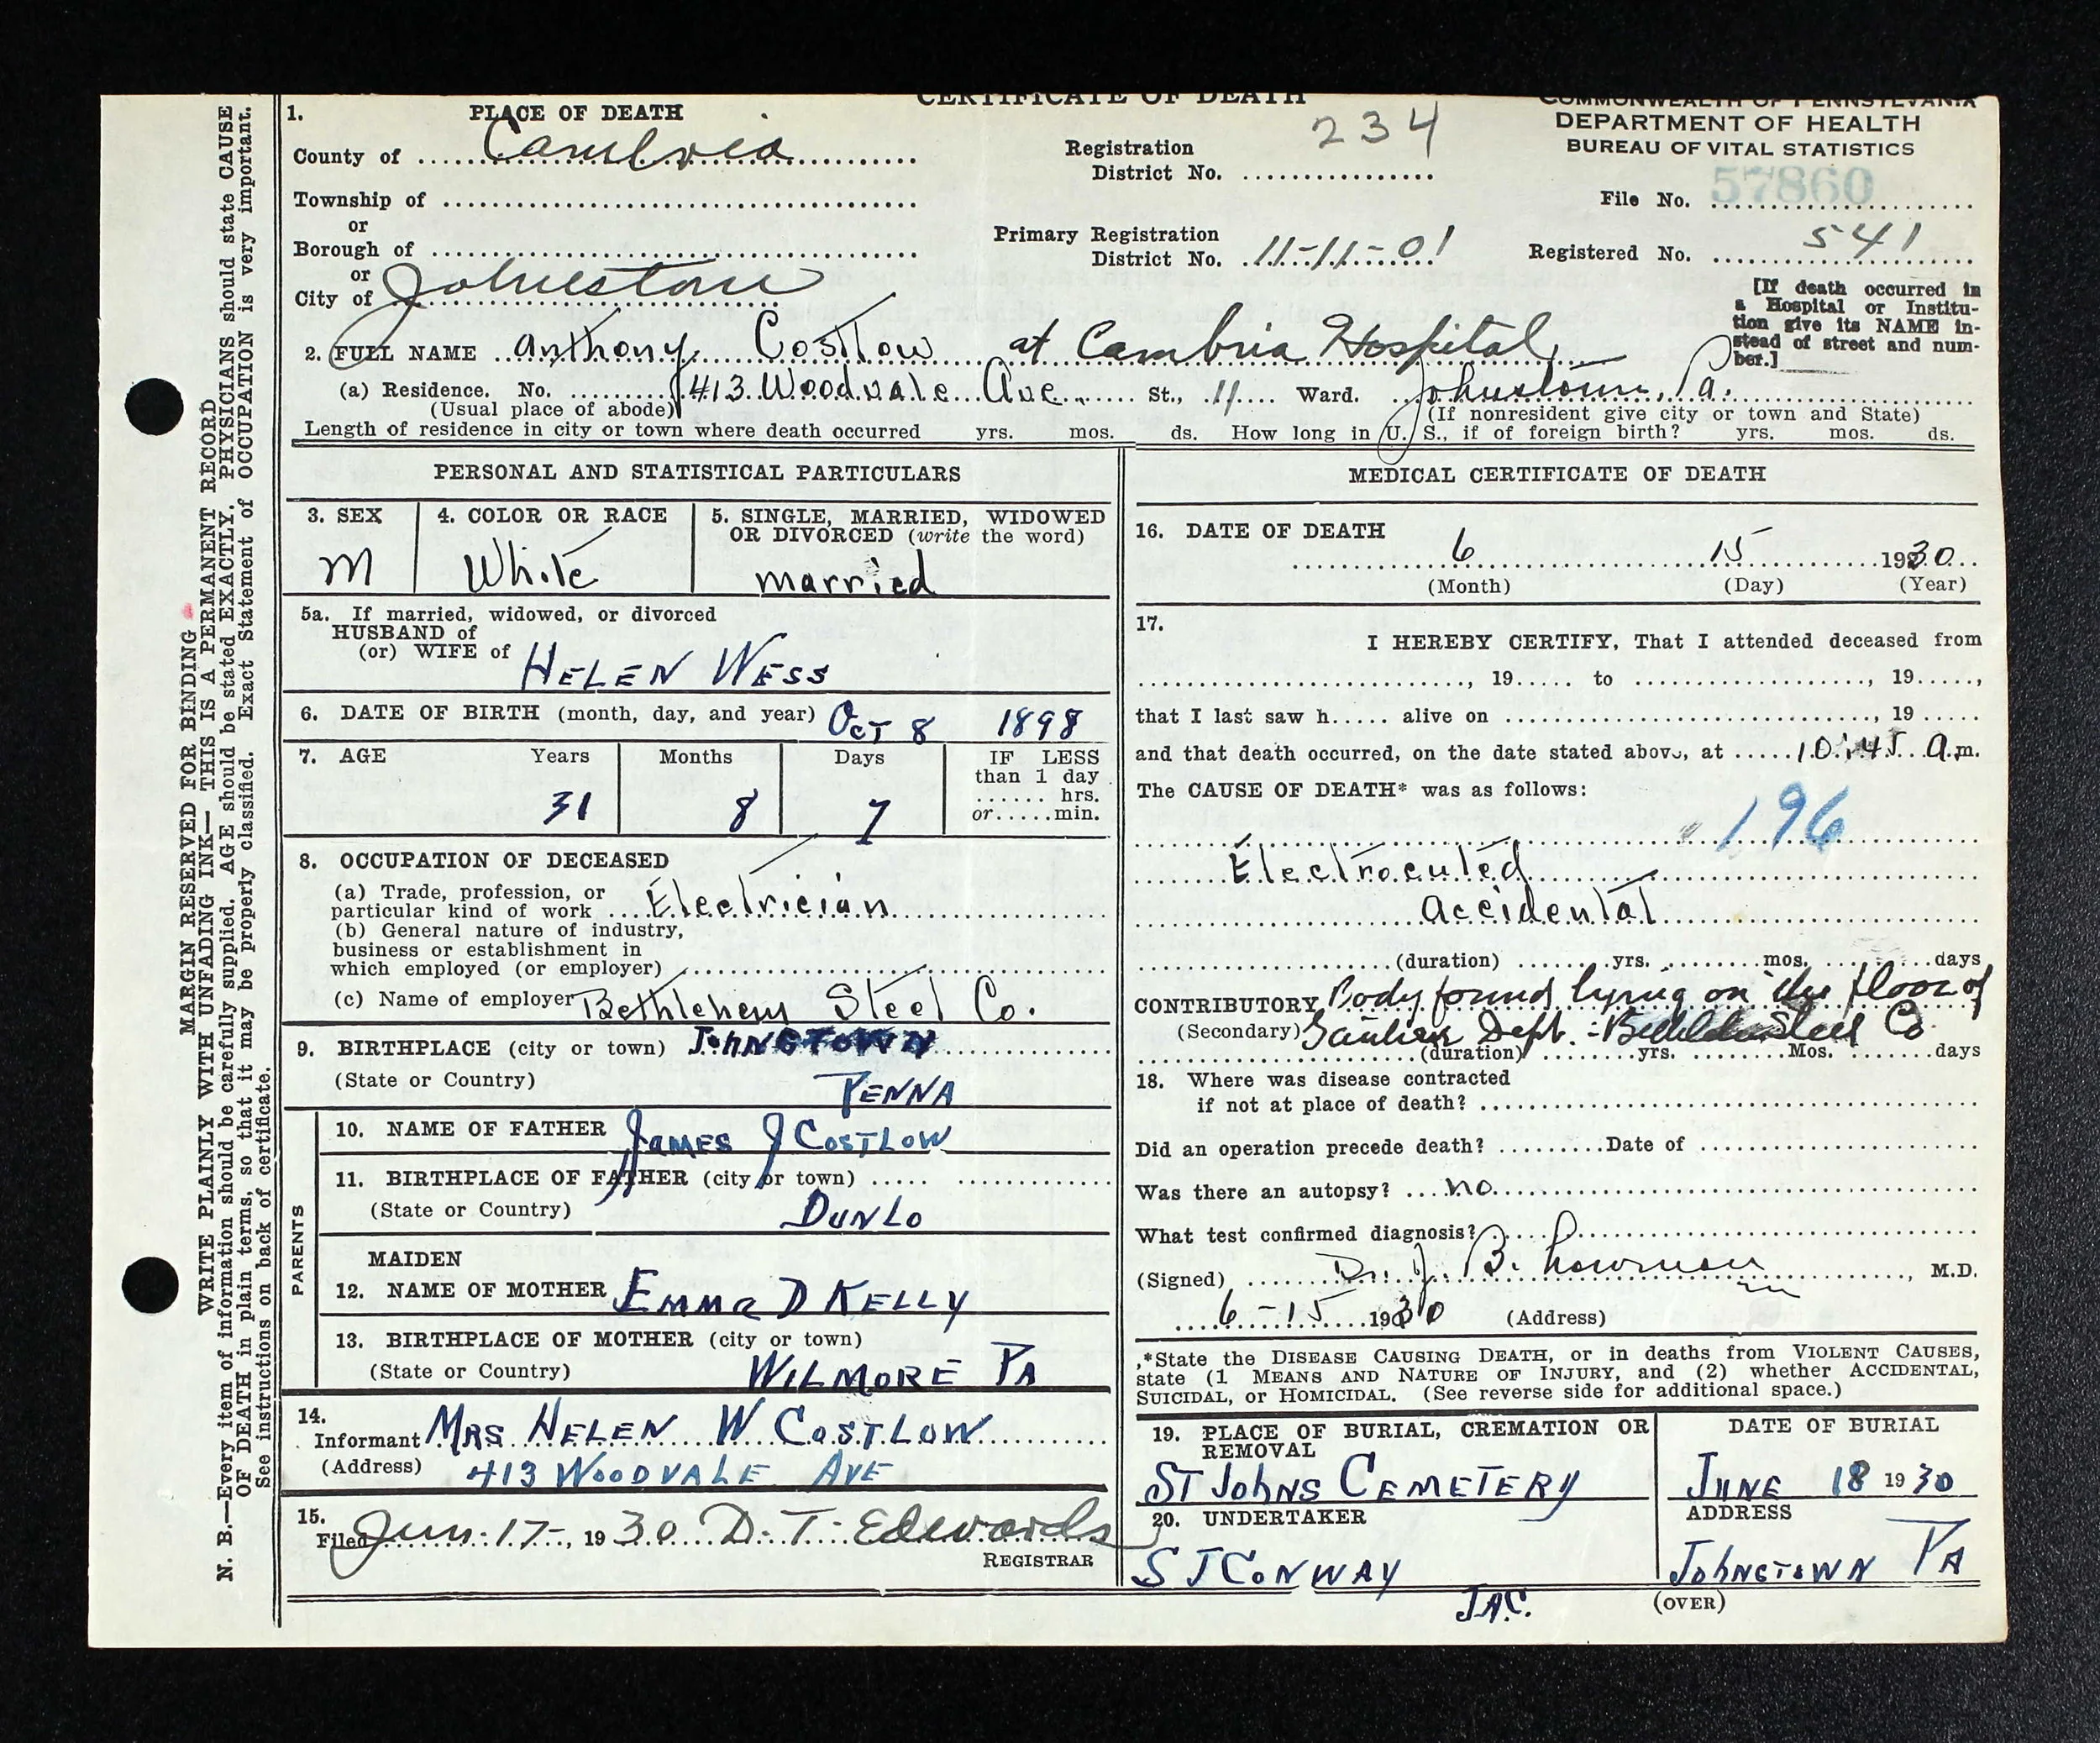 CERTIFICATE OF DEATH
COMMONWEALTH OF PENNSYLVANIA
DEPARTMENT OF HEALTH
BUREAU OF VITAL STATISTICS
1. PLACE OF DEATH
County of Cambria
Registration District No. 234
File No. 57860
Township of
or
Borough of
Primary Registration District No. 11-11-01
Registered No. 541
or
City of Johnstown
[If death occurred in a Hospital or Institution give its NAME instead of street and number.]
2. FULL NAME Anthony Costlow at Cambria Hospital
(a) Residence. No. 413 Woodvale Ave. St., 11 Ward. Johnstown, Pa.
(Usual place of abode) (If nonresident give city or town and State)
Length of residence in city or town where death occurred yrs. mos. ds. How long in U. S., if of foreign birth? yrs. mos. ds.
PERSONAL AND STATISTICAL PARTICULARS
3. SEX
M
4. COLOR OR RACE
White
5. SINGLE, MARRIED, WIDOWED OR DIVORCED (write the word)
married
5a. If married, widowed, or divorced
HUSBAND of
(or) WIFE of HELEN WESS
6. DATE OF BIRTH (month, day, and year) OCT 8 1898
7. AGE Years Months Days IF LESS than 1 day
31 8 7 ...... hrs. or.....min.
8. OCCUPATION OF DECEASED
(a) Trade, profession, or particular kind of work Electrician
(b) General nature of industry, business or establishment in which employed (or employer)
(c) Name of employer Bethlehem Steel Co.
9. BIRTHPLACE (city or town) JOHNSTOWN
(State or Country) PENNA
PARENTS
10. NAME OF FATHER JAMES J COSTLOW
11. BIRTHPLACE OF FATHER (city or town)
(State or Country) DUNLO
MAIDEN
12. NAME OF MOTHER EMMA D KELLY
13. BIRTHPLACE OF MOTHER (city or town)
(State or Country) WILMORE PA
14. Informant MRS HELEN W COSTLOW
(Address) 413 WOODVALE AVE
15. Filed Jun. 17-, 1930 D. T. Edwards
REGISTRAR
MEDICAL CERTIFICATE OF DEATH
16. DATE OF DEATH
6 15 1930
(Month) (Day) (Year)
17.
I HEREBY CERTIFY, That I attended deceased from
, 19..... to , 19.....,
that I last saw h..... alive on , 19 .....
and that death occurred, on the date stated above, at 10:45 a.m.
The CAUSE OF DEATH* was as follows:
196
Electrocuted
accidental
(duration) yrs. mos. days
CONTRIBUTORY Body found lying on the floor of
(Secondary) Gautier Dept. - Bethlehem Steel Co
(duration) yrs. Mos. days
18. Where was disease contracted
if not at place of death?
Did an operation precede death? Date of
Was there an autopsy? no
What test confirmed diagnosis?
(Signed) Dr. J. B. Lowman, M.D.
6-15 1930 (Address)
*State the DISEASE CAUSING DEATH, or in deaths from VIOLENT CAUSES,
state (1 MEANS AND NATURE OF INJURY, and (2) whether ACCIDENTAL,
SUICIDAL, or HOMICIDAL. (See reverse side for additional space.)
19. PLACE OF BURIAL, CREMATION OR REMOVAL
ST JOHNS CEMETERY
DATE OF BURIAL
JUNE 18 1930
20. UNDERTAKER
S J CONWAY
JAC.
ADDRESS
JOHNSTOWN PA
(OVER)
MARGIN RESERVED FOR BINDING
WRITE PLAINLY WITH UNFADING INK—THIS IS A PERMANENT RECORD
N. B.—Every item of information should be carefully supplied. AGE should be stated EXACTLY. PHYSICIANS should state CAUSE
OF DEATH in plain terms, so that it may be properly classified. Exact Statement of OCCUPATION is very important.
See instructions on back of certificate.